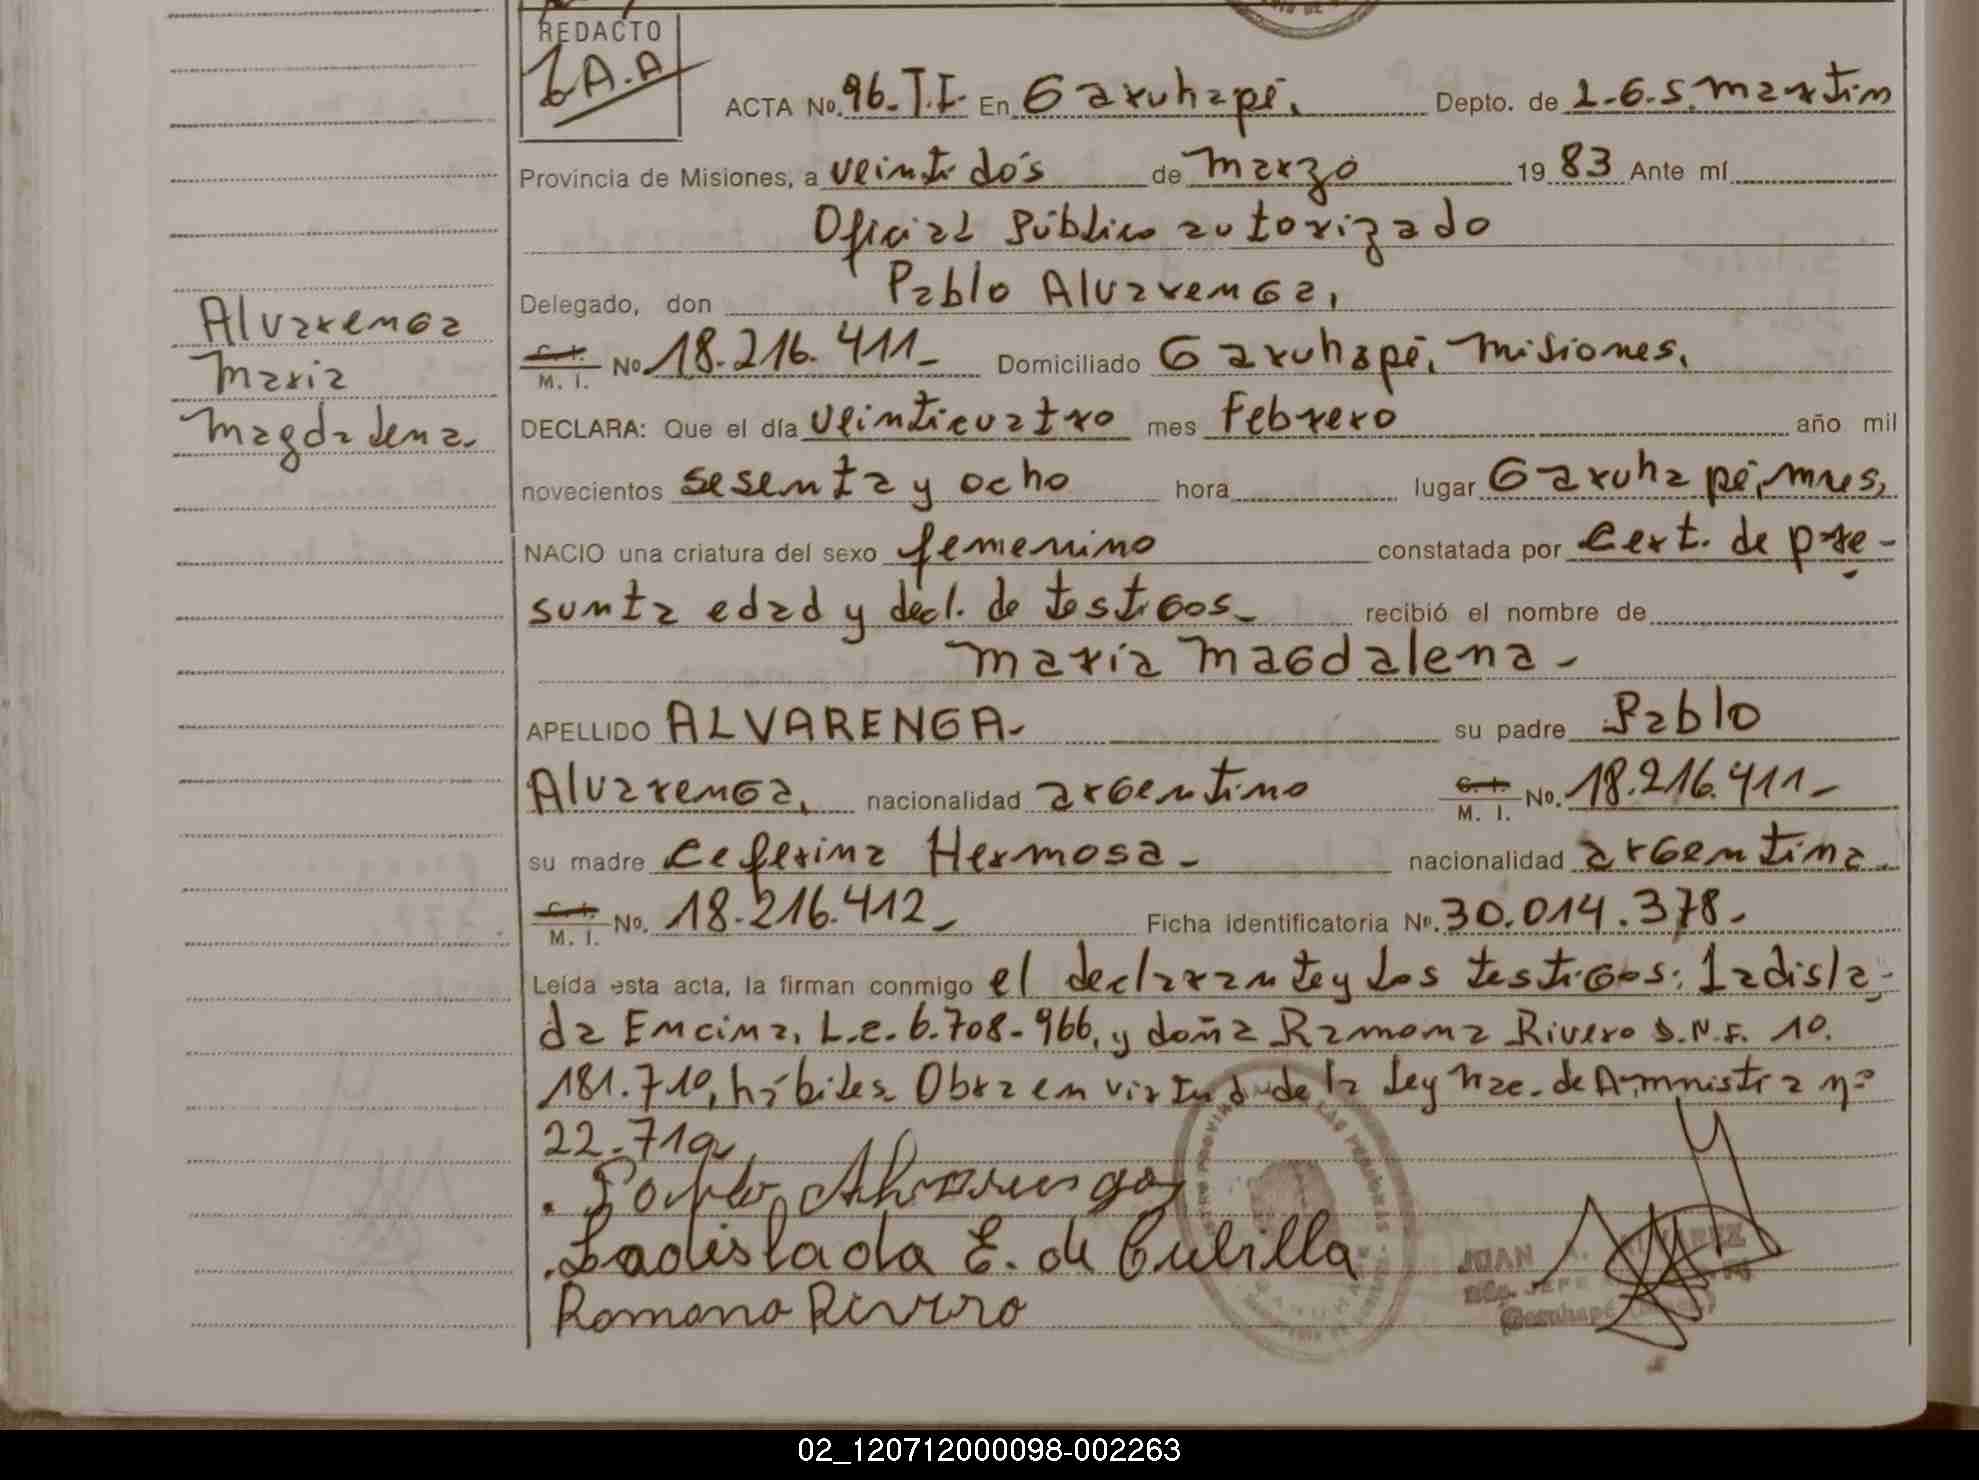 REDACTO
ACTA No. 96. T.I. En Garuhapé, Depto. de L.G.S. Martín
Provincia de Misiones, a veintidós de Marzo 19 83 Ante mí
Oficial Público autorizado
Delegado, don Pablo Alvarenga,
C. I. M. I. No 18.216.411- Domiciliado Garuhapé, Misiones,
Alvarenga
María
Magdalena.
DECLARA: Que el día veinticuatro mes Febrero año mil
novecientos sesenta y ocho hora lugar Garuhapé, Mnes,
NACIO una criatura del sexo femenino constatada por Cert. de pre-
sunta edad y decl. de testigos- recibió el nombre de
María Magdalena-
APELLIDO ALVARENGA- su padre Pablo
Alvarenga, nacionalidad argentino C. I. M. I. No. 18.216.411-
su madre Ceferina Hermosa- nacionalidad argentina
C. I. M. I. No. 18.216.412- Ficha identificatoria Nº. 30.014.378-
Leída esta acta, la firman conmigo el declarante y los testigos: Ladisla-
da Encina, L.C. 6.708-966, y doña Ramona Rivero D.N.I. 10.
181.710, hábiles. Obra en virtud de la Ley Nac. de Amnistia nº
22.710
Pablo Alvarenga
Ladislada E. de Cubilla
Ramona Rivero
JUAN
JEFE
Garuhapé
02_120712000098-002263